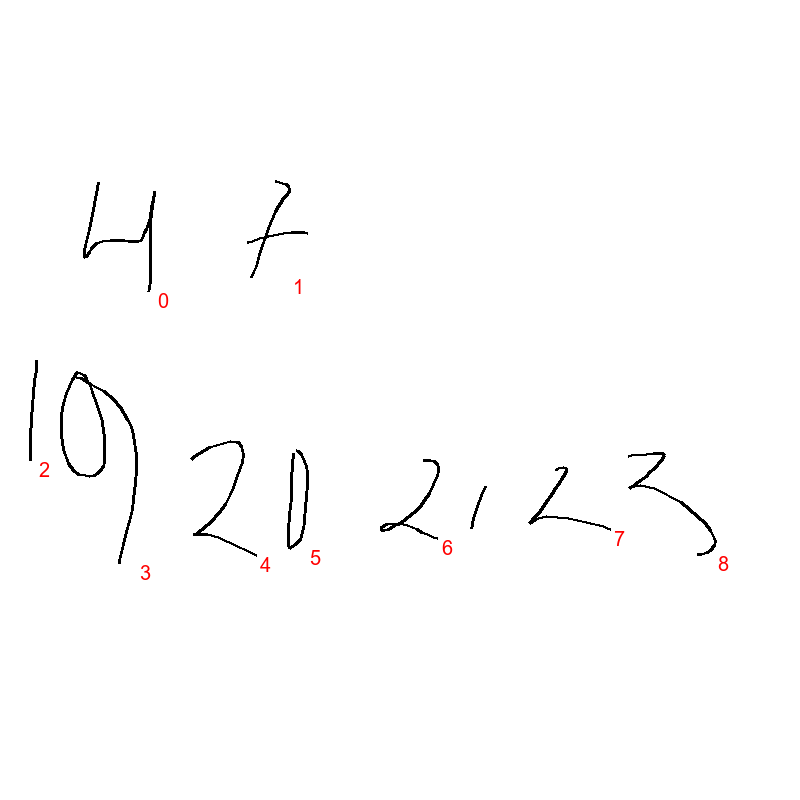 4 7
0 1
19 20 21 23
2 3 4 5 6 7 8